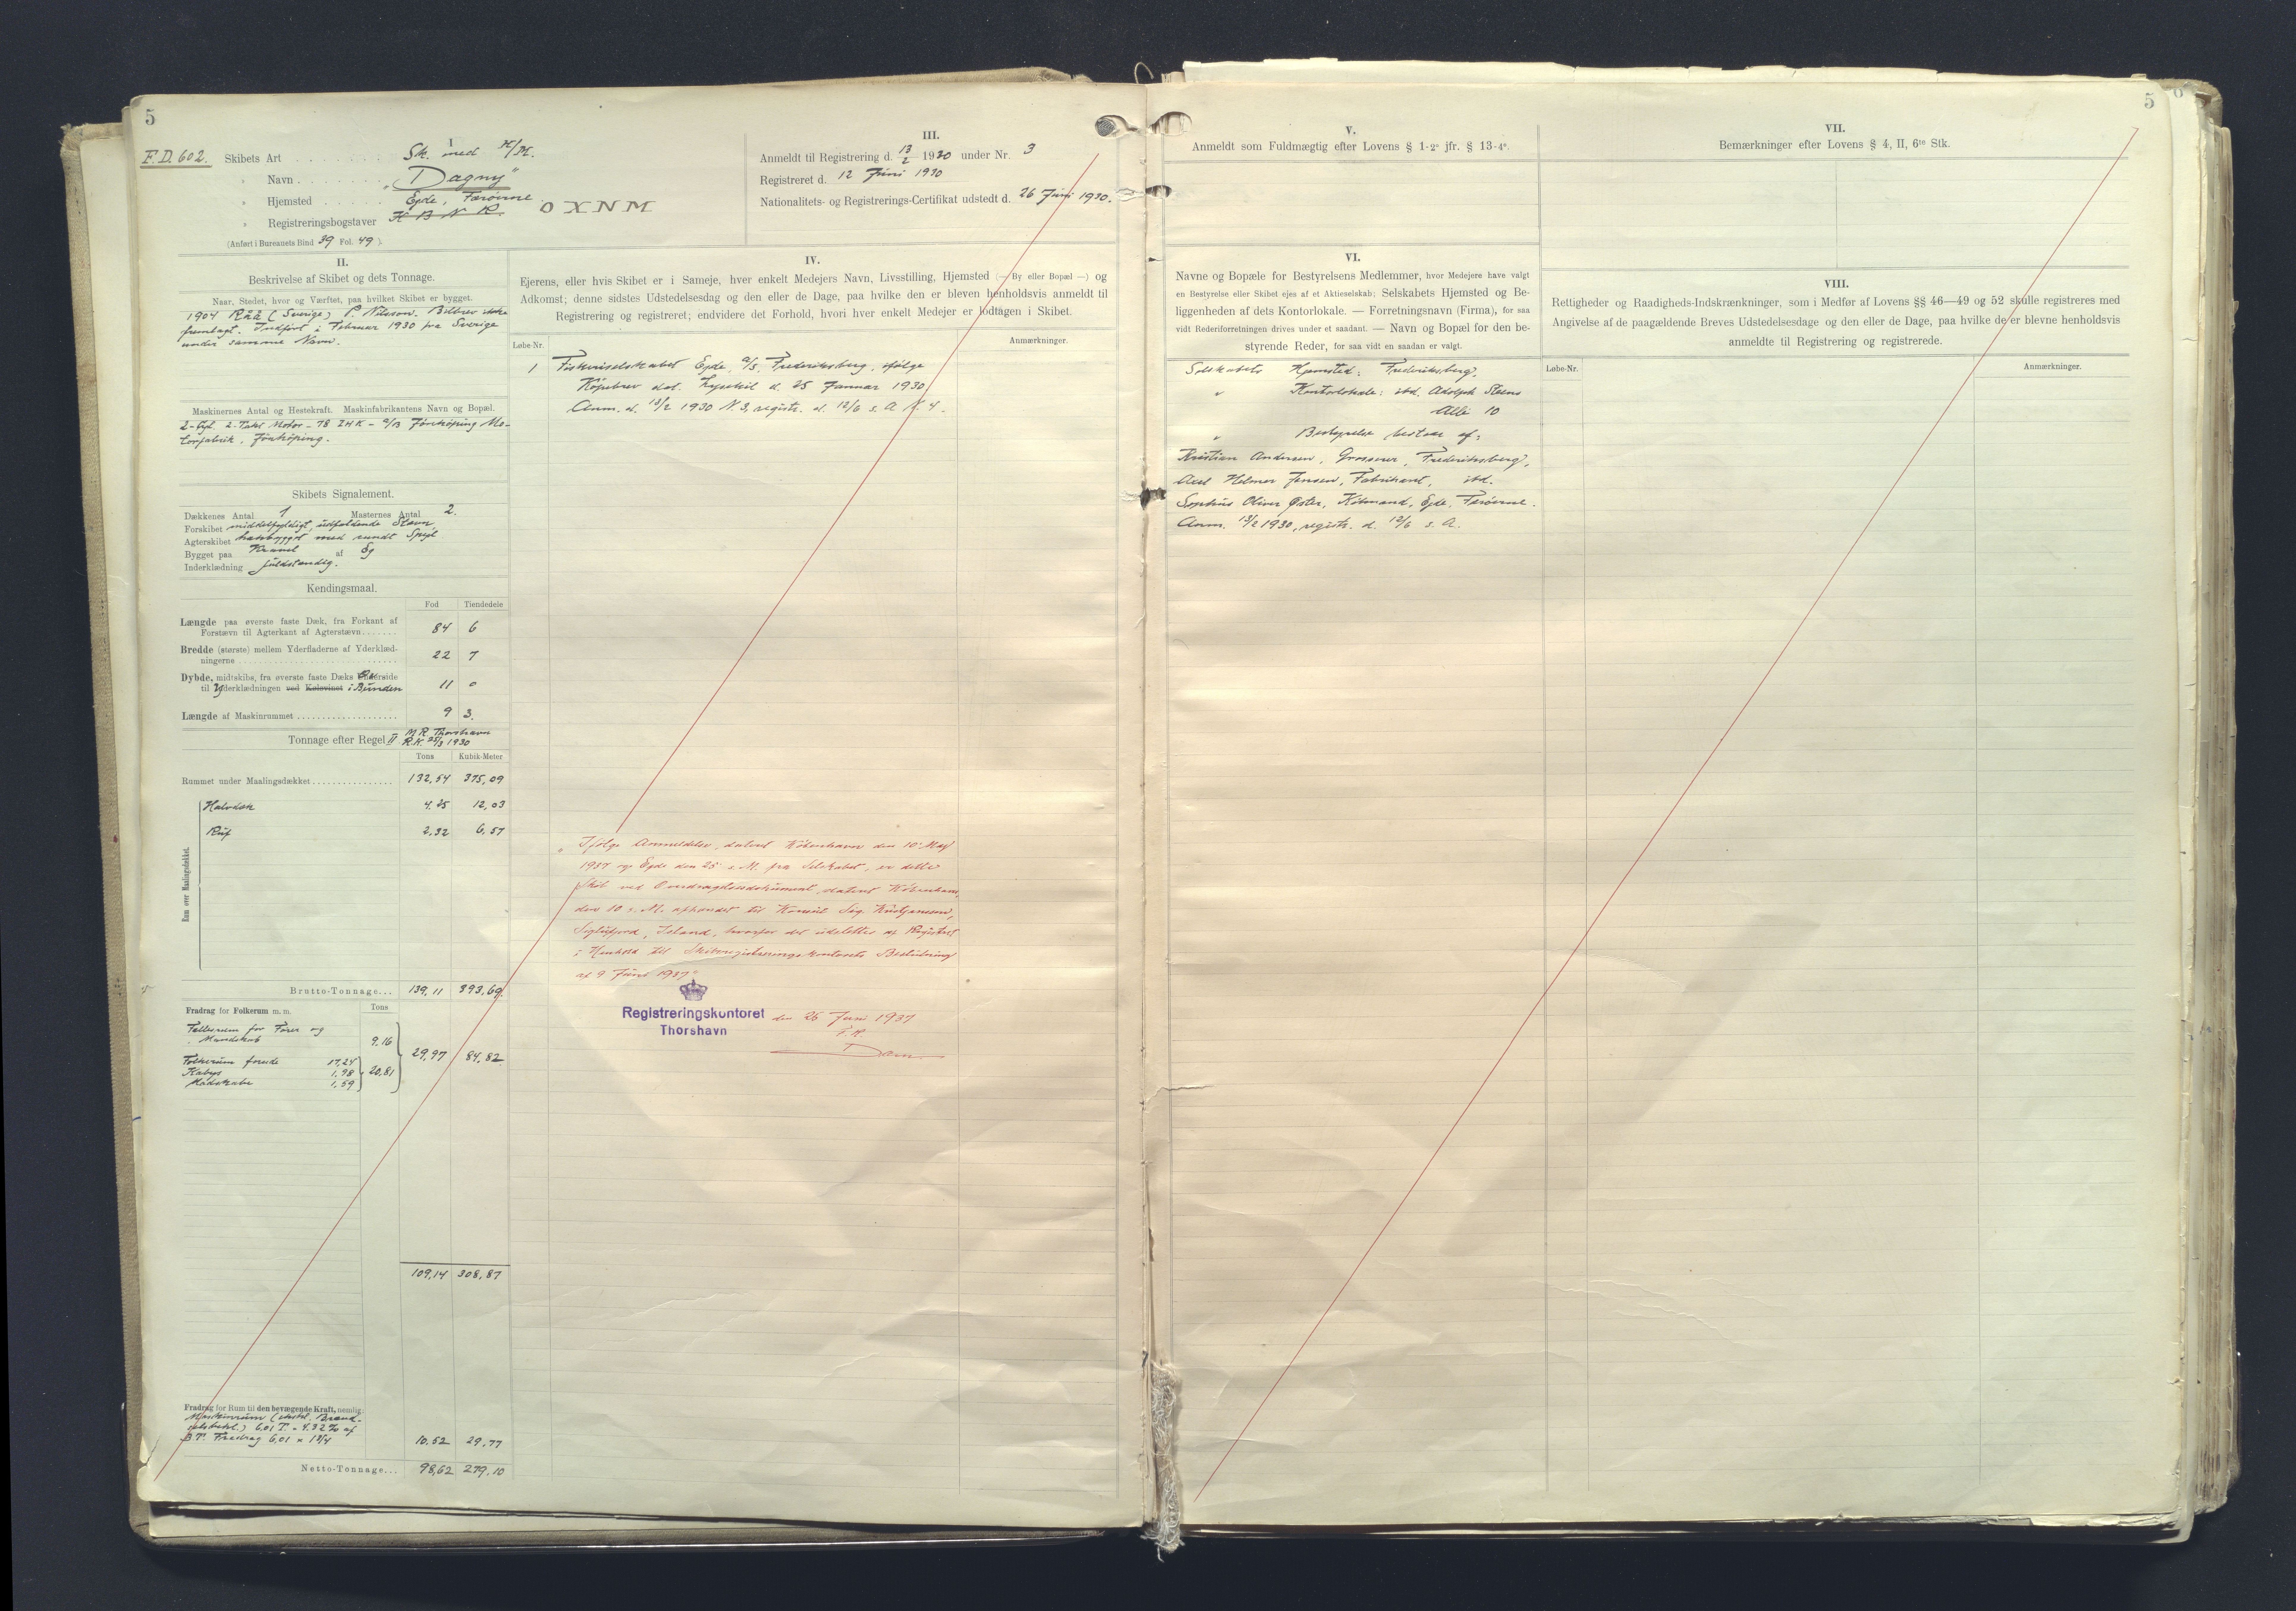 5
F.D. 602.
I
Skibets Art . . . . . . . . Sk. med H/M.
" Navn . . . . . . . . „Dagny“
" Hjemsted . . . . . Ejde, Færøerne.
" Registreringsbogstaver OXNM
(Anført i Bureauets Bind 39 Fol. 49 ).
II.
Beskrivelse af Skibet og dets Tonnage.
Naar, Stedet, hvor og Værftet, paa hvilket Skibet er bygget.
1904 Råå (Sverige) P. Nilsson. Bilbrev ikke
fremlagt. Indført i Februar 1930 fra Sverige
under samme Navn.
Maskinernes Antal og Hestekraft. Maskinfabrikantens Navn og Bopæl.
2-Cyl. 2-Takt Motor - 78 IHK - A/B Jönköping Mo-
torfabrik, Jönköping.
Skibets Signalement.
Dækkenes Antal 1 Masternes Antal 2.
Forskibet middelfyldigt, udfaldende Stævn,
Agterskibet hækbygget med rundt Spejl
Bygget paa Kravel af Eg
Inderklædning fuldstændig.
Kendingsmaal.
Fod Tiendedele
Længde paa øverste faste Dæk, fra Forkant af
Forstævn til Agterkant af Agterstævn....... 84 6
Bredde (største) mellem Yderfladerne af Yderklæd-
ningerne ........ 22 7
Dybde, midtskibs, fra øverste faste Dæks Overside
til Yderklædningen ved Kølsvinet i Bunden 11 0
Længde af Maskinrummet ........ 9 3.
Tonnage efter Regel II M R Thorshavn
R.K. 25/3 1930
Tons Kubik-Meter
Rummet under Maalingsdækket ........ 132,54 375,09
Rum over Maalingsdækket.
Halvdæk 4.25 12,03
Ruf 2,32 6,57
Brutto-Tonnage... 139,11 393,69.
Fradrag for Folkerum m. m. Tons
Fællesrum for Fører og
Mandskab 9,16
29,97 84,82
Folkerum forude 17,24
Kabys 1,98 20,81
Madskabe 1,59
109,14 308,87
Fradrag for Rum til den bevægende Kraft, nemlig:
Maskinrum (ekskl. Brænd-
selsbeh.) 6,01 T. = 4.32 % af
B.T. Fradrag 6,01 × 1 3/4 10,52 29,77
Netto-Tonnage... 98,62 279,10
III.
Anmeldt til Registrering d. 13/2 1930 under Nr. 3
Registreret d. 12 Juni 1930
Nationalitets- og Registrerings-Certifikat udstedt d. 26 Juni 1930.
IV.
Ejerens, eller hvis Skibet er i Sameje, hver enkelt Medejers Navn, Livsstilling, Hjemsted (— By eller Bopæl —) og
Adkomst; denne sidstes Udstedelsesdag og den eller de Dage, paa hvilke den er bleven henholdsvis anmeldt til
Registrering og registreret; endvidere det Forhold, hvori hver enkelt Medejer er lodtagen i Skibet.
Løbe-Nr. Anmærkninger.
1 Fiskeriselskabet Ejde, A/S, Frederiksberg, ifølge
Köpebrev dat. Lysekil d. 25 Januar 1930.
Anm. d. 13/2 1930 N. 3, registr. d. 12/6 s. A. N. 4.
„Ifølge Anmeldelse, dateret København den 10' Maj
1937 og Ejde den 25' s. M. fra Selskabet, er dette
Skib ved Overdragelsesdokument, dateret København,
den 10 s. M. afhændet til Konsul Sig. Kristjansson,
Siglufjord, Island, hvorfor det udslettes af Registret
i Henhold til Skibsregistreringskontorets Beslutning
af 9 Juni 1937“
Registreringskontoret
Thorshavn
den 26 Juni 1937
F.R.
Dam
5
V.
Anmeldt som Fuldmægtig efter Lovens § 1-2° jfr. § 13-4°.
VI.
Navne og Bopæle for Bestyrelsens Medlemmer, hvor Medejere have valgt
en Bestyrelse eller Skibet ejes af et Aktieselskab; Selskabets Hjemsted og Be-
liggenheden af dets Kontorlokale. — Forretningsnavn (Firma), for saa
vidt Rederiforretningen drives under et saadant. — Navn og Bopæl for den be-
styrende Reder, for saa vidt en saadan er valgt.
Selskabets Hjemsted: Frederiksberg,
" Kontorlokale: ibd. Adolph Steens
Allé 10
" Bestyrelse bestaar af:
Kristian Andersen, Grosserer, Frederiksberg,
Axel Helmer Jensen, Fabrikant, ibd.
Sophus Oliver Øster, Købmand, Ejde, Færøerne.
Anm. 13/2 1930, registr. d. 12/6 s. A.
VII.
Bemærkninger efter Lovens § 4, II, 6te Stk.
VIII.
Rettigheder og Raadigheds-Indskrænkninger, som i Medfør af Lovens §§ 46—49 og 52 skulle registreres med
Angivelse af de paagældende Breves Udstedelsesdage og den eller de Dage, paa hvilke de er blevne henholdsvis
anmeldte til Registrering og registrerede.
Løbe-Nr. Anmærkninger.